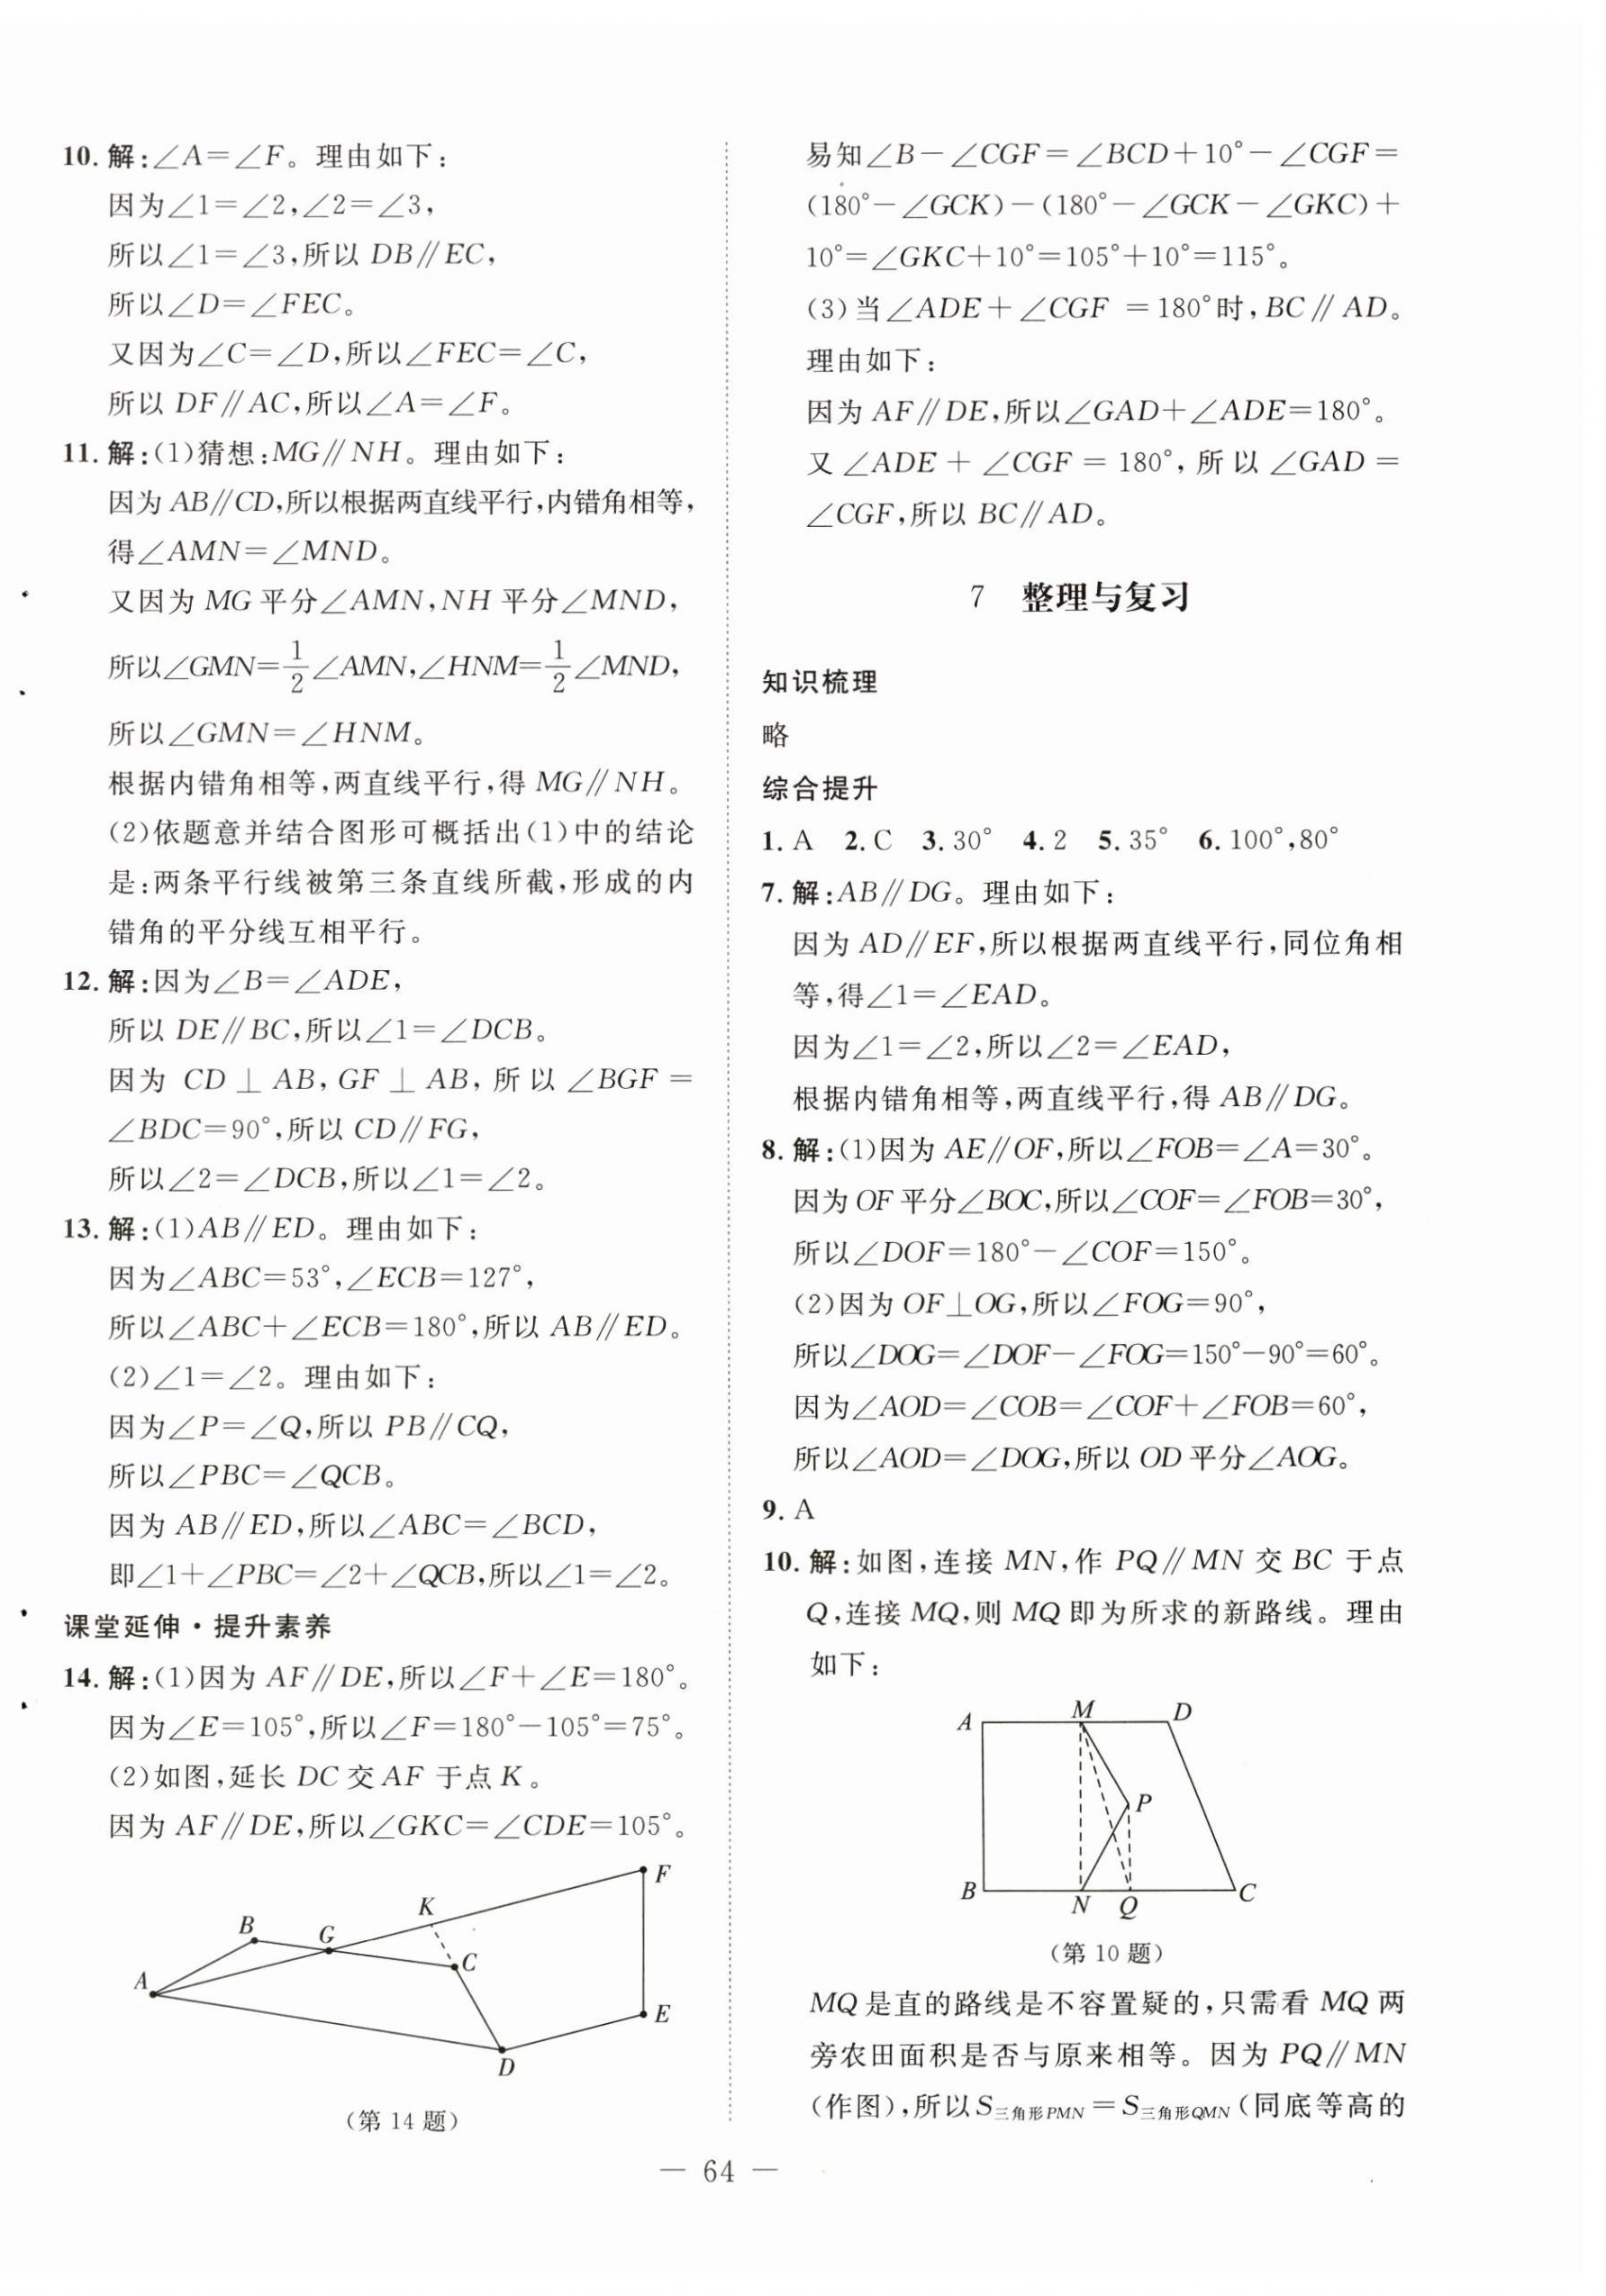 10. 解:∠A=∠F。理由如下:
因为∠1=∠2,∠2=∠3,
所以∠1=∠3,所以 DB∥EC,
所以∠D=∠FEC。
又因为∠C=∠D,所以∠FEC=∠C,
所以 DF∥AC,所以∠A=∠F。
11. 解:(1)猜想:MG∥NH。理由如下:
因为 AB∥CD,所以根据两直线平行,内错角相等,
得∠AMN=∠MND。
又因为 MG 平分∠AMN,NH 平分∠MND,
所以∠GMN=1/2∠AMN,∠HNM=1/2∠MND,
所以∠GMN=∠HNM。
根据内错角相等,两直线平行,得 MG∥NH。
(2)依题意并结合图形可概括出(1)中的结论
是:两条平行线被第三条直线所截,形成的内
错角的平分线互相平行。
12. 解:因为∠B=∠ADE,
所以 DE∥BC,所以∠1=∠DCB。
因为 CD⊥AB,GF⊥AB,所以∠BGF=
∠BDC=90°,所以 CD∥FG,
所以∠2=∠DCB,所以∠1=∠2。
13. 解:(1)AB∥ED。理由如下:
因为∠ABC=53°,∠ECB=127°,
所以∠ABC+∠ECB=180°,所以 AB∥ED。
(2)∠1=∠2。理由如下:
因为∠P=∠Q,所以 PB∥CQ,
所以∠PBC=∠QCB。
因为 AB∥ED,所以∠ABC=∠BCD,
即∠1+∠PBC=∠2+∠QCB,所以∠1=∠2。
课堂延伸·提升素养
14. 解:(1)因为 AF∥DE,所以∠F+∠E=180°。
因为∠E=105°,所以∠F=180°-105°=75°。
(2)如图,延长 DC 交 AF 于点 K。
因为 AF∥DE,所以∠GKC=∠CDE=105°。
F
K
B
G
C
A
E
D
(第 14 题)
易知∠B-∠CGF=∠BCD+10°-∠CGF=
(180°-∠GCK)-(180°-∠GCK-∠GKC)+
10°=∠GKC+10°=105°+10°=115°。
(3)当∠ADE+∠CGF=180°时,BC∥AD。
理由如下:
因为 AF∥DE,所以∠GAD+∠ADE=180°。
又∠ADE+∠CGF=180°,所以∠GAD=
∠CGF,所以 BC∥AD。
7 整理与复习
知识梳理
略
综合提升
1. A 2. C 3. 30° 4. 2 5. 35° 6. 100°,80°
7. 解:AB∥DG。理由如下:
因为 AD∥EF,所以根据两直线平行,同位角相
等,得∠1=∠EAD。
因为∠1=∠2,所以∠2=∠EAD,
根据内错角相等,两直线平行,得 AB∥DG。
8. 解:(1)因为 AE∥OF,所以∠FOB=∠A=30°。
因为 OF 平分∠BOC,所以∠COF=∠FOB=30°,
所以∠DOF=180°-∠COF=150°。
(2)因为 OF⊥OG,所以∠FOG=90°,
所以∠DOG=∠DOF-∠FOG=150°-90°=60°。
因为∠AOD=∠COB=∠COF+∠FOB=60°,
所以∠AOD=∠DOG,所以 OD 平分∠AOG。
9. A
10. 解:如图,连接 MN,作 PQ∥MN 交 BC 于点
Q,连接 MQ,则 MQ 即为所求的新路线。理由
如下:
A M D
P
B N Q C
(第 10 题)
MQ 是直的路线是不容置疑的,只需看 MQ 两
旁农田面积是否与原来相等。因为 PQ∥MN
(作图),所以 S三角形PMN=S三角形QMN(同底等高的
— 64 —